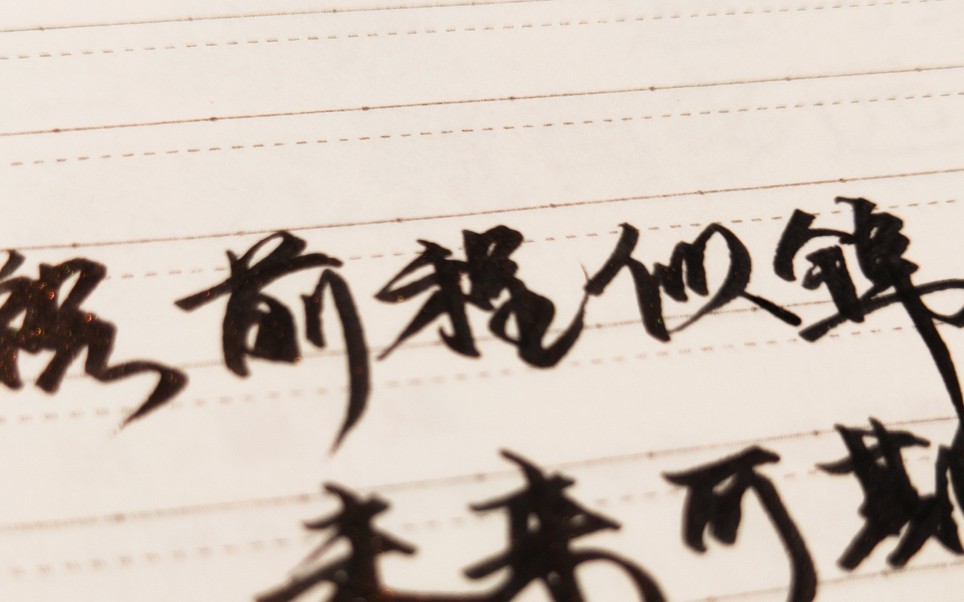 祝前程似锦
未来可期